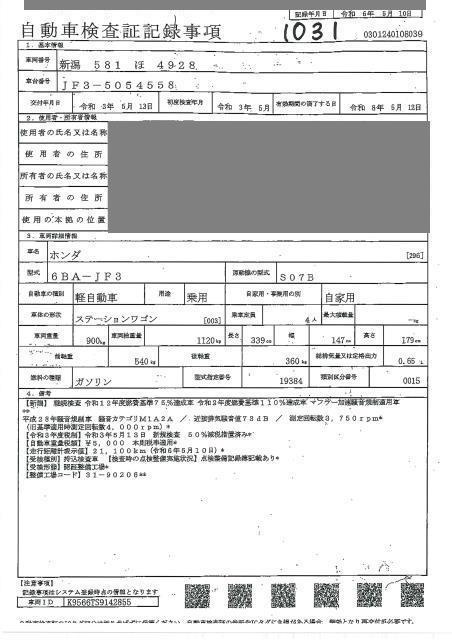 記録年月日 令和 6年 5月 10日
自動車検査証記録事項 1031 0301240108039
1. 基本情報
車両番号 新潟 581 ほ 4928
車台番号 JF3-5054558
交付年月日 令和 3年 5月 13日 初度検査年月 令和 3年 5月 有効期間の満了する日 令和 8年 5月 12日
2. 使用者・所有者情報
使用者の氏名又は名称
使用者の住所
所有者の氏名又は名称
所有者の住所
使用の本拠の位置
3. 車両詳細情報
車名 ホンダ [296]
型式 6BA-JF3 原動機の型式 S07B
自動車の種別 軽自動車 用途 乗用 自家用・事業用の別 自家用
車体の形状 ステーションワゴン [003] 乗車定員 4人 最大積載量 -kg
車両重量 900kg 車両総重量 1120kg 長さ 339cm 幅 147cm 高さ 179cm
前軸重 540kg 後軸重 360kg 総排気量又は定格出力 0.65L
燃料の種類 ガソリン 型式指定番号 19384 類別区分番号 0015
4. 備考
【新潟】 継続検査 令和12年度燃費基準75%達成車 令和2年度燃費基準110%達成車 *マフラー加速騒音規制適用車
**
平成28年騒音規制車 騒音カテゴリM1A2A / 近接排気騒音値73dB / 測定回転数3,750rpm*
(旧基準適用時測定回転数4,000rpm)*
【令和3年度税制】令和3年5月13日 新規検査 50%減税措置済み*
【自動車重量税額】¥5,000 本則税率適用*
【走行距離計表示値】21,100km(令和6年5月10日)*
【受検種別】持込検査車 【検査時の点検整備実施状況】点検整備記録簿記載あり*
【受検形態】認証整備工場*
【整備工場コード】31-90206**
【注意事項】
記録事項はシステム登録時点の情報となります
車両ID K9566TS9142855